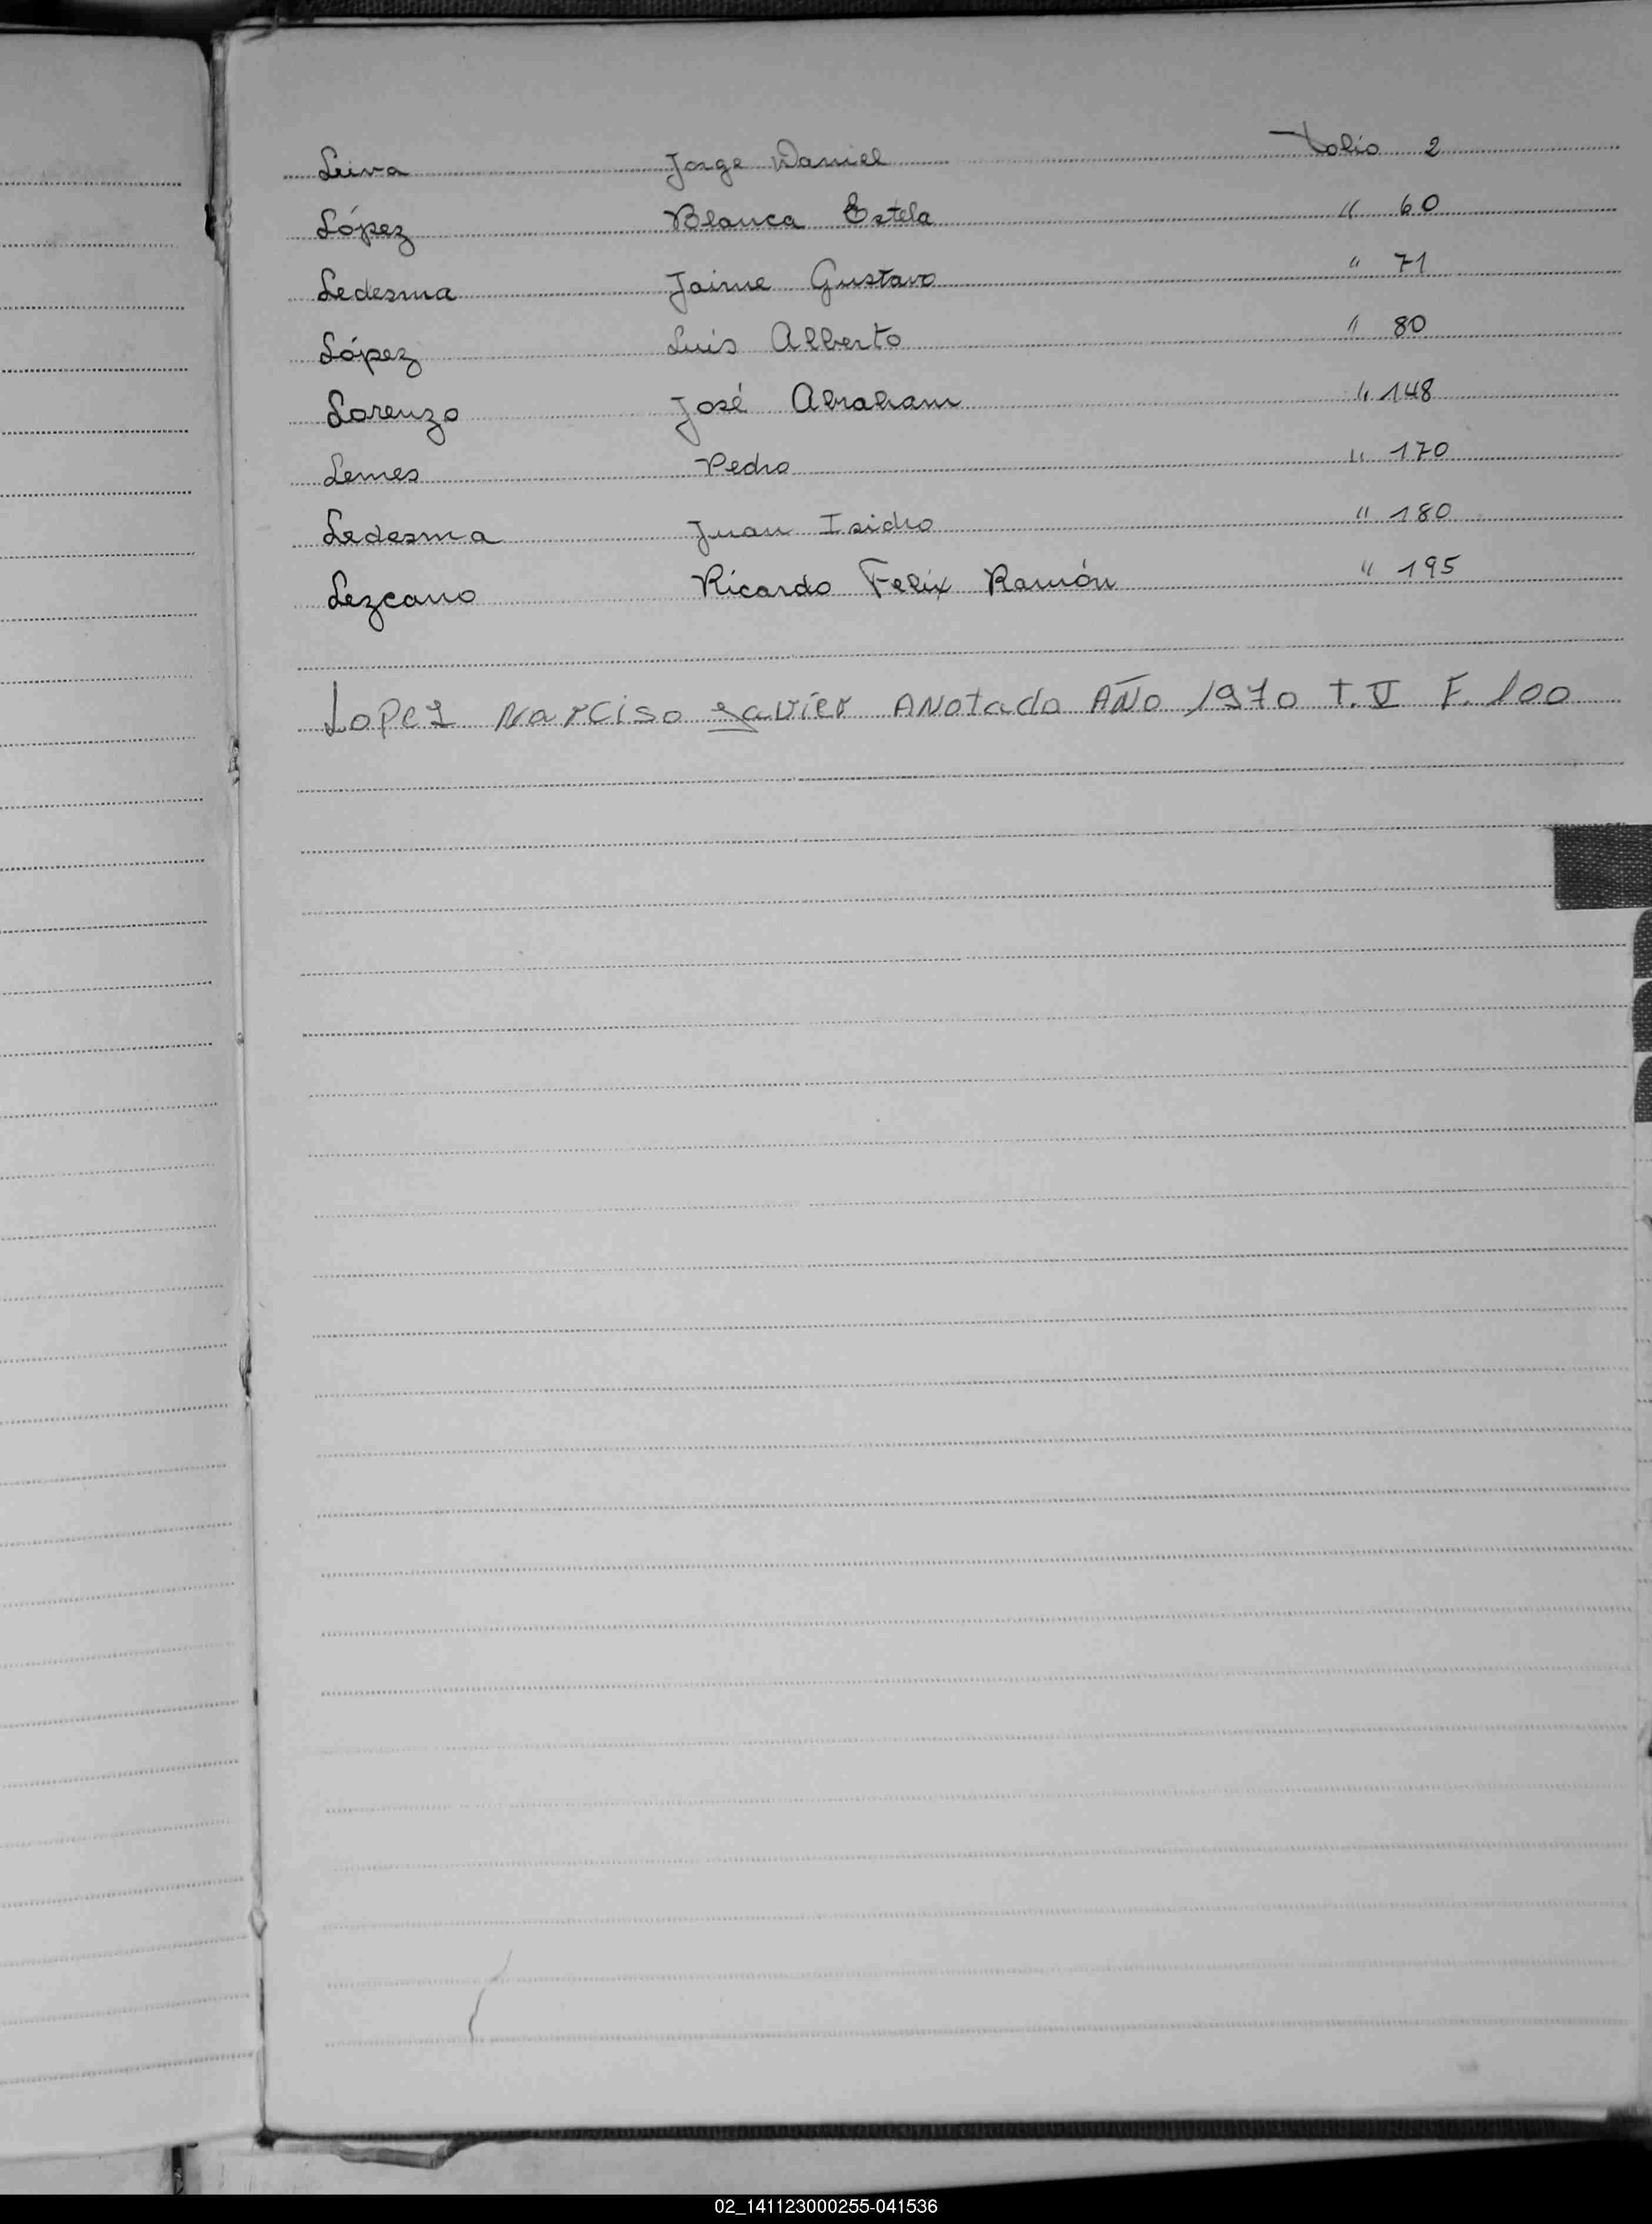 Leiva Jorge Daniel Folio 2
López Blanca Estela " 60
Ledesma Jaime Gustavo " 71
López Luis Alberto " 80
Lorenzo José Abraham " 148
Lemes Pedro " 170
Ledesma Juan Isidro " 180
Lezcano Ricardo Felix Ramón " 195
Lopez Narciso Javier Anotado AÑo 1970 T. V F. 100
02_141123000255-041536